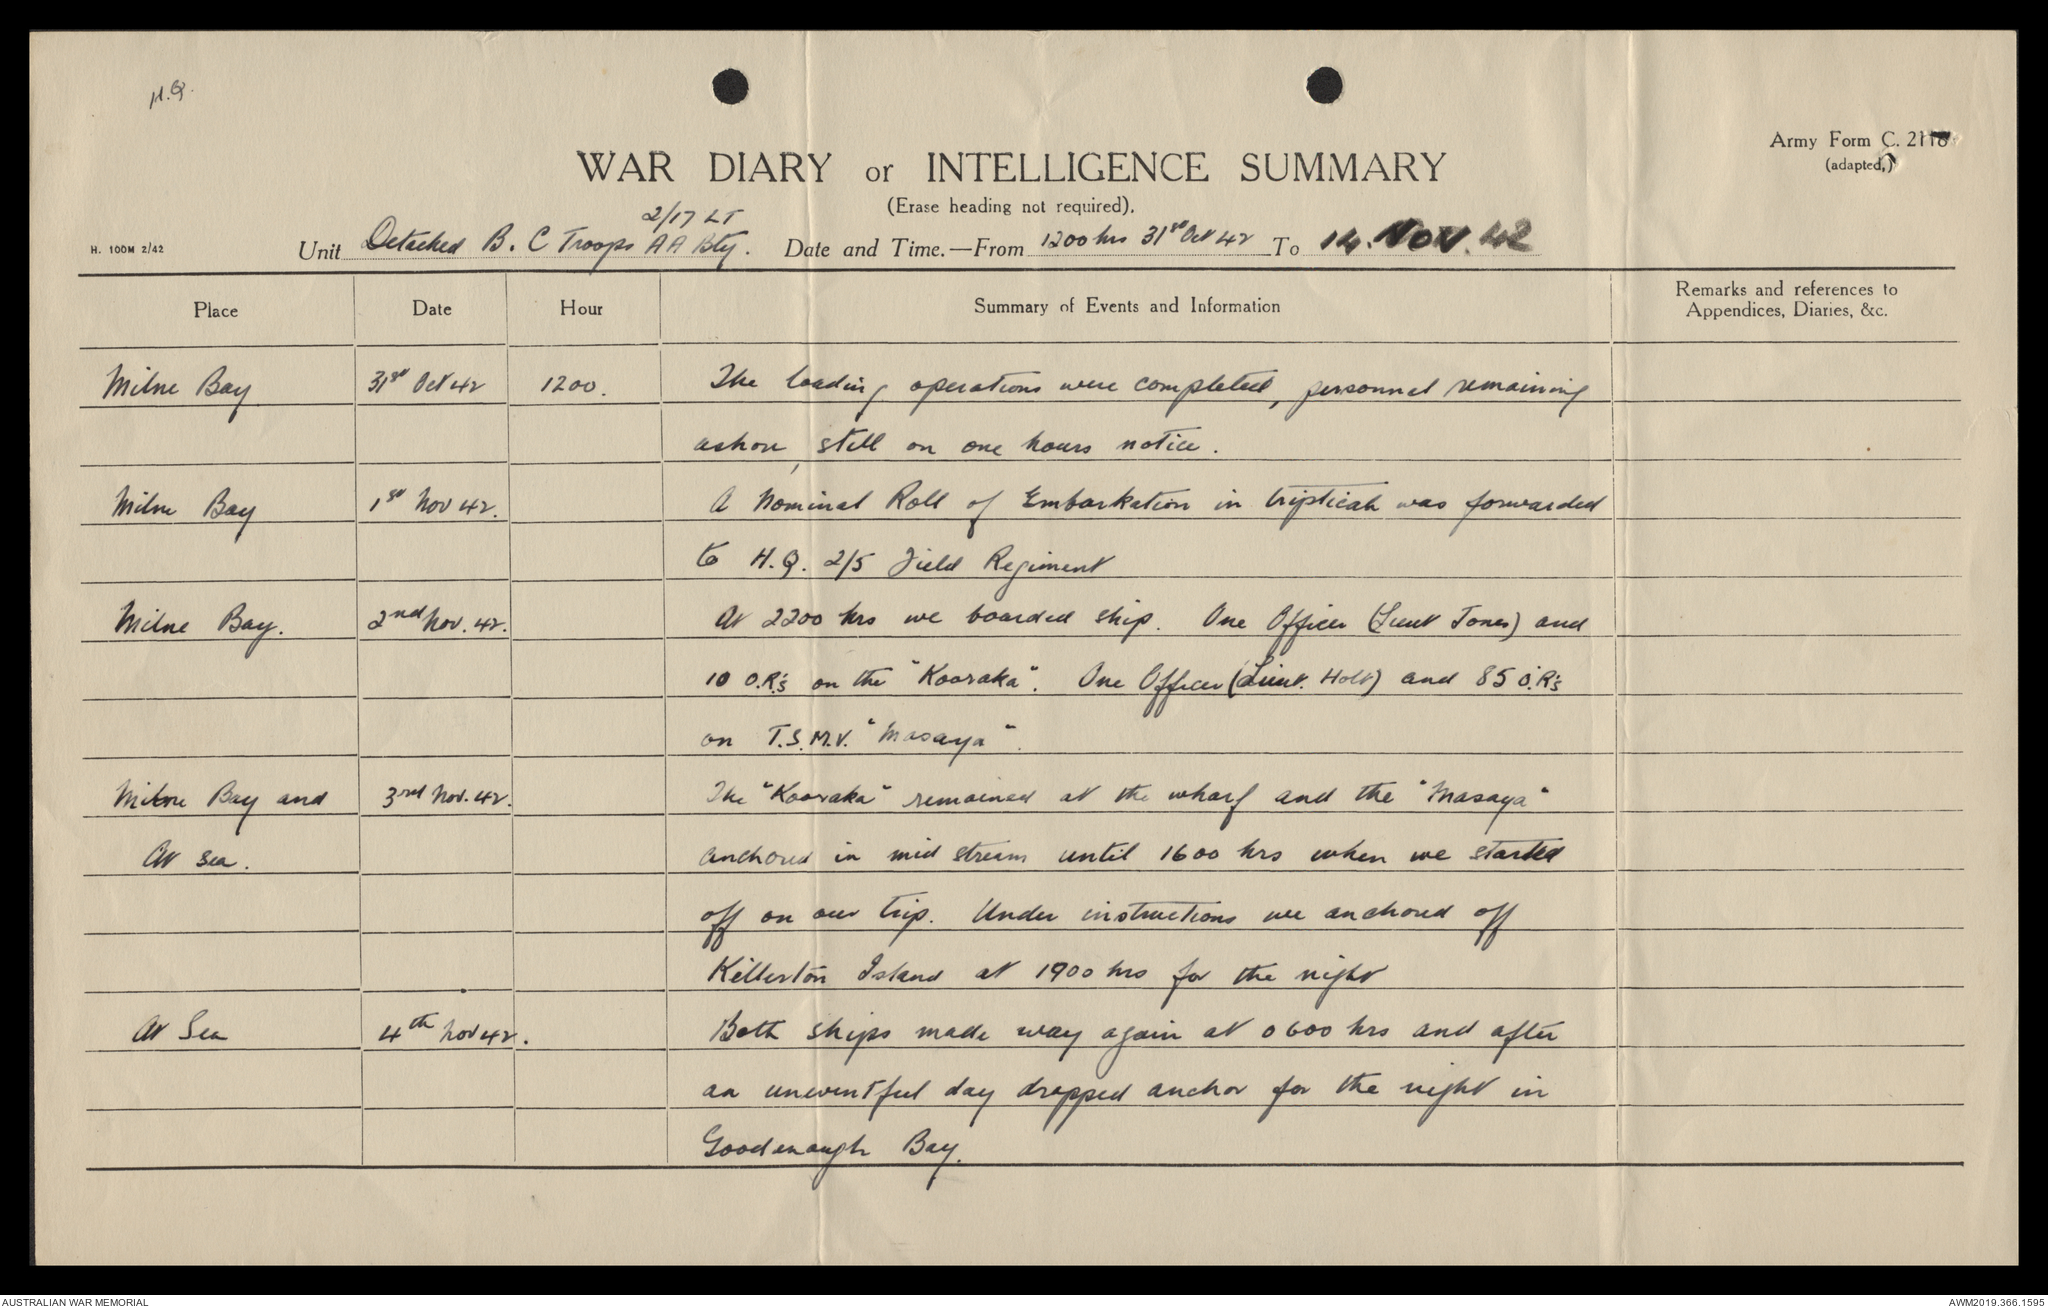 H.Q.
Army Form C. 2118
(adapted.)
WAR DIARY or INTELLIGENCE SUMMARY
(Erase heading not required).
H. 100M 2/42
Unit Detached B. C Troops 2/17 LT AA Bty. Date and Time.—From 1200 hrs 31st Oct 42 To 14. NOV. 42
Place Date Hour Summary of Events and Information Remarks and references to
Appendices, Diaries, &c.
Milne Bay 31st Oct 42 1200. The loading operations were completed, personnel remaining
ashore, still on one hours notice.
Milne Bay 1st Nov 42. A Nominal Roll of Embarkation in tripticah was forwarded
to H.Q. 2/5 Field Regiment
Milne Bay. 2nd Nov. 42. At 2200 hrs we boarded ship. One Officer (Lieut Jones) and
10 O.R's on the "Kooraka". One Officer (Lieut. Holt) and 85 O.R's
on T.S.M.V. "Masaya".
Milne Bay and 3rd Nov. 42. The "Kooraka" remained at the wharf and the "Masaya"
At Sea. anchored in mid stream until 1600 hrs when we started
off on our trip. Under instructions we anchored off
Killerton Island at 1900 hrs for the night
At Sea 4th Nov 42. Both ships made way again at 0600 hrs and after
an uneventful day dropped anchor for the night in
Goodenough Bay.
AUSTRALIAN WAR MEMORIAL
AWM2019.366.1595